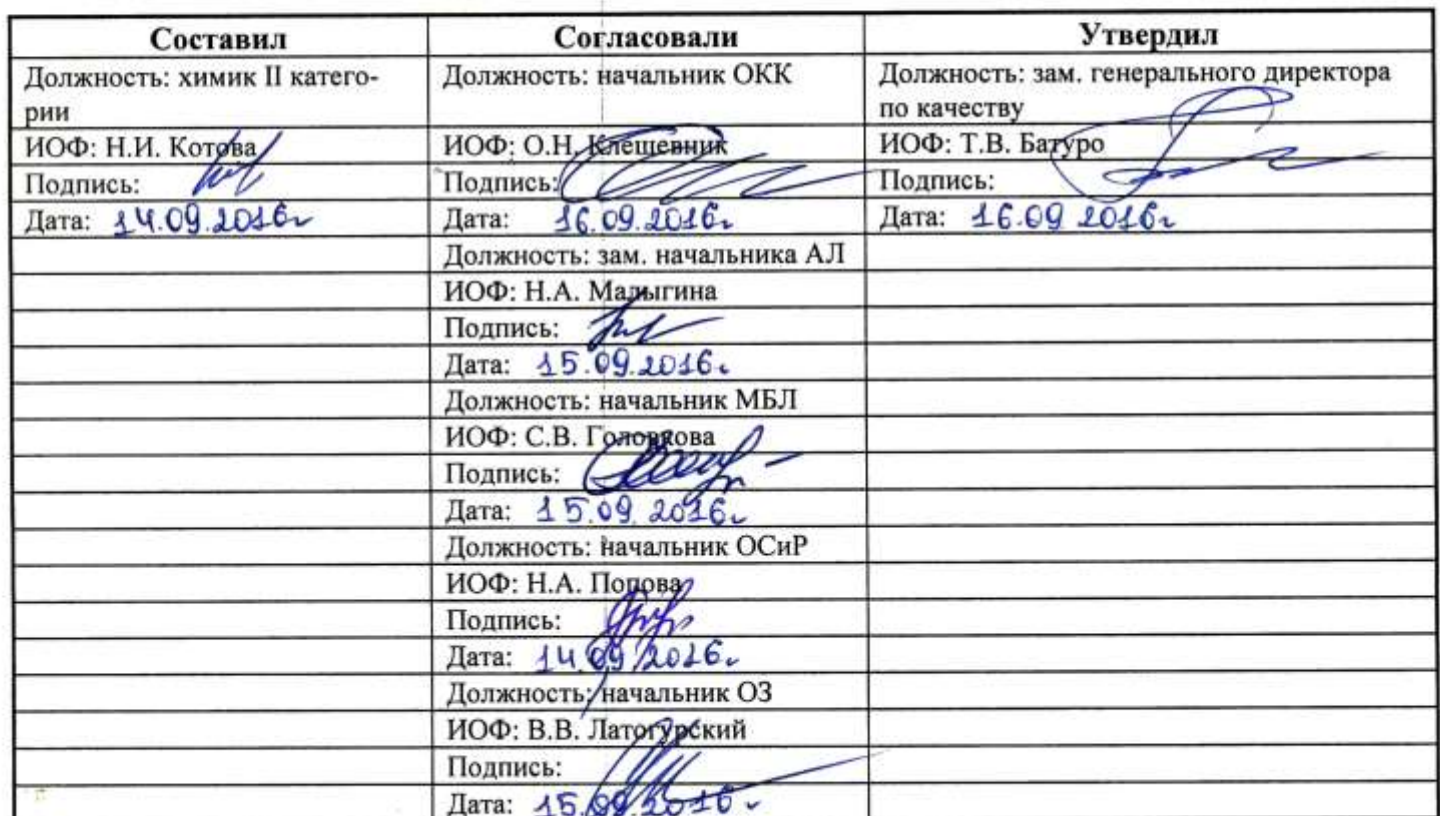 Составил Согласовали Утвердил
Должность: химик II катего- Должность: начальник ОКК Должность: зам. генерального директора
рии по качеству
ИОФ: Н.И. Котова ИОФ: О.Н. Клешевник ИОФ: Т.В. Батуро
Подпись: Подпись: Подпись:
Дата: 14.09.2016г Дата: 16.09.2016г Дата: 16.09 2016г
Должность: зам. начальника АЛ
ИОФ: Н.А. Малыгина
Подпись:
Дата: 15.09.2016г
Должность: начальник МБЛ
ИОФ: С.В. Головкова
Подпись:
Дата: 15.09.2016г
Должность: начальник ОСиР
ИОФ: Н.А. Попова
Подпись:
Дата: 14.09.2016г
Должность: начальник ОЗ
ИОФ: В.В. Латогурский
Подпись:
Дата: 15.09.2016г